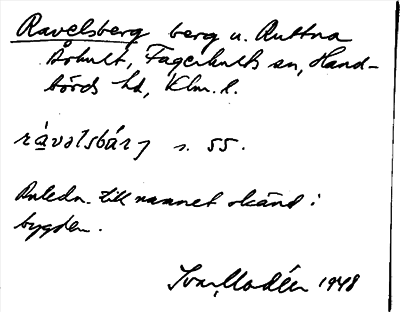 Ravelsberg berg u. Ruttna
Århult, Fagerhults sn, Hand-
börds hd, Klm. l.
s. 55.
Anledn. till namnet okänd i
bygden.
Ivar Modéer 1948